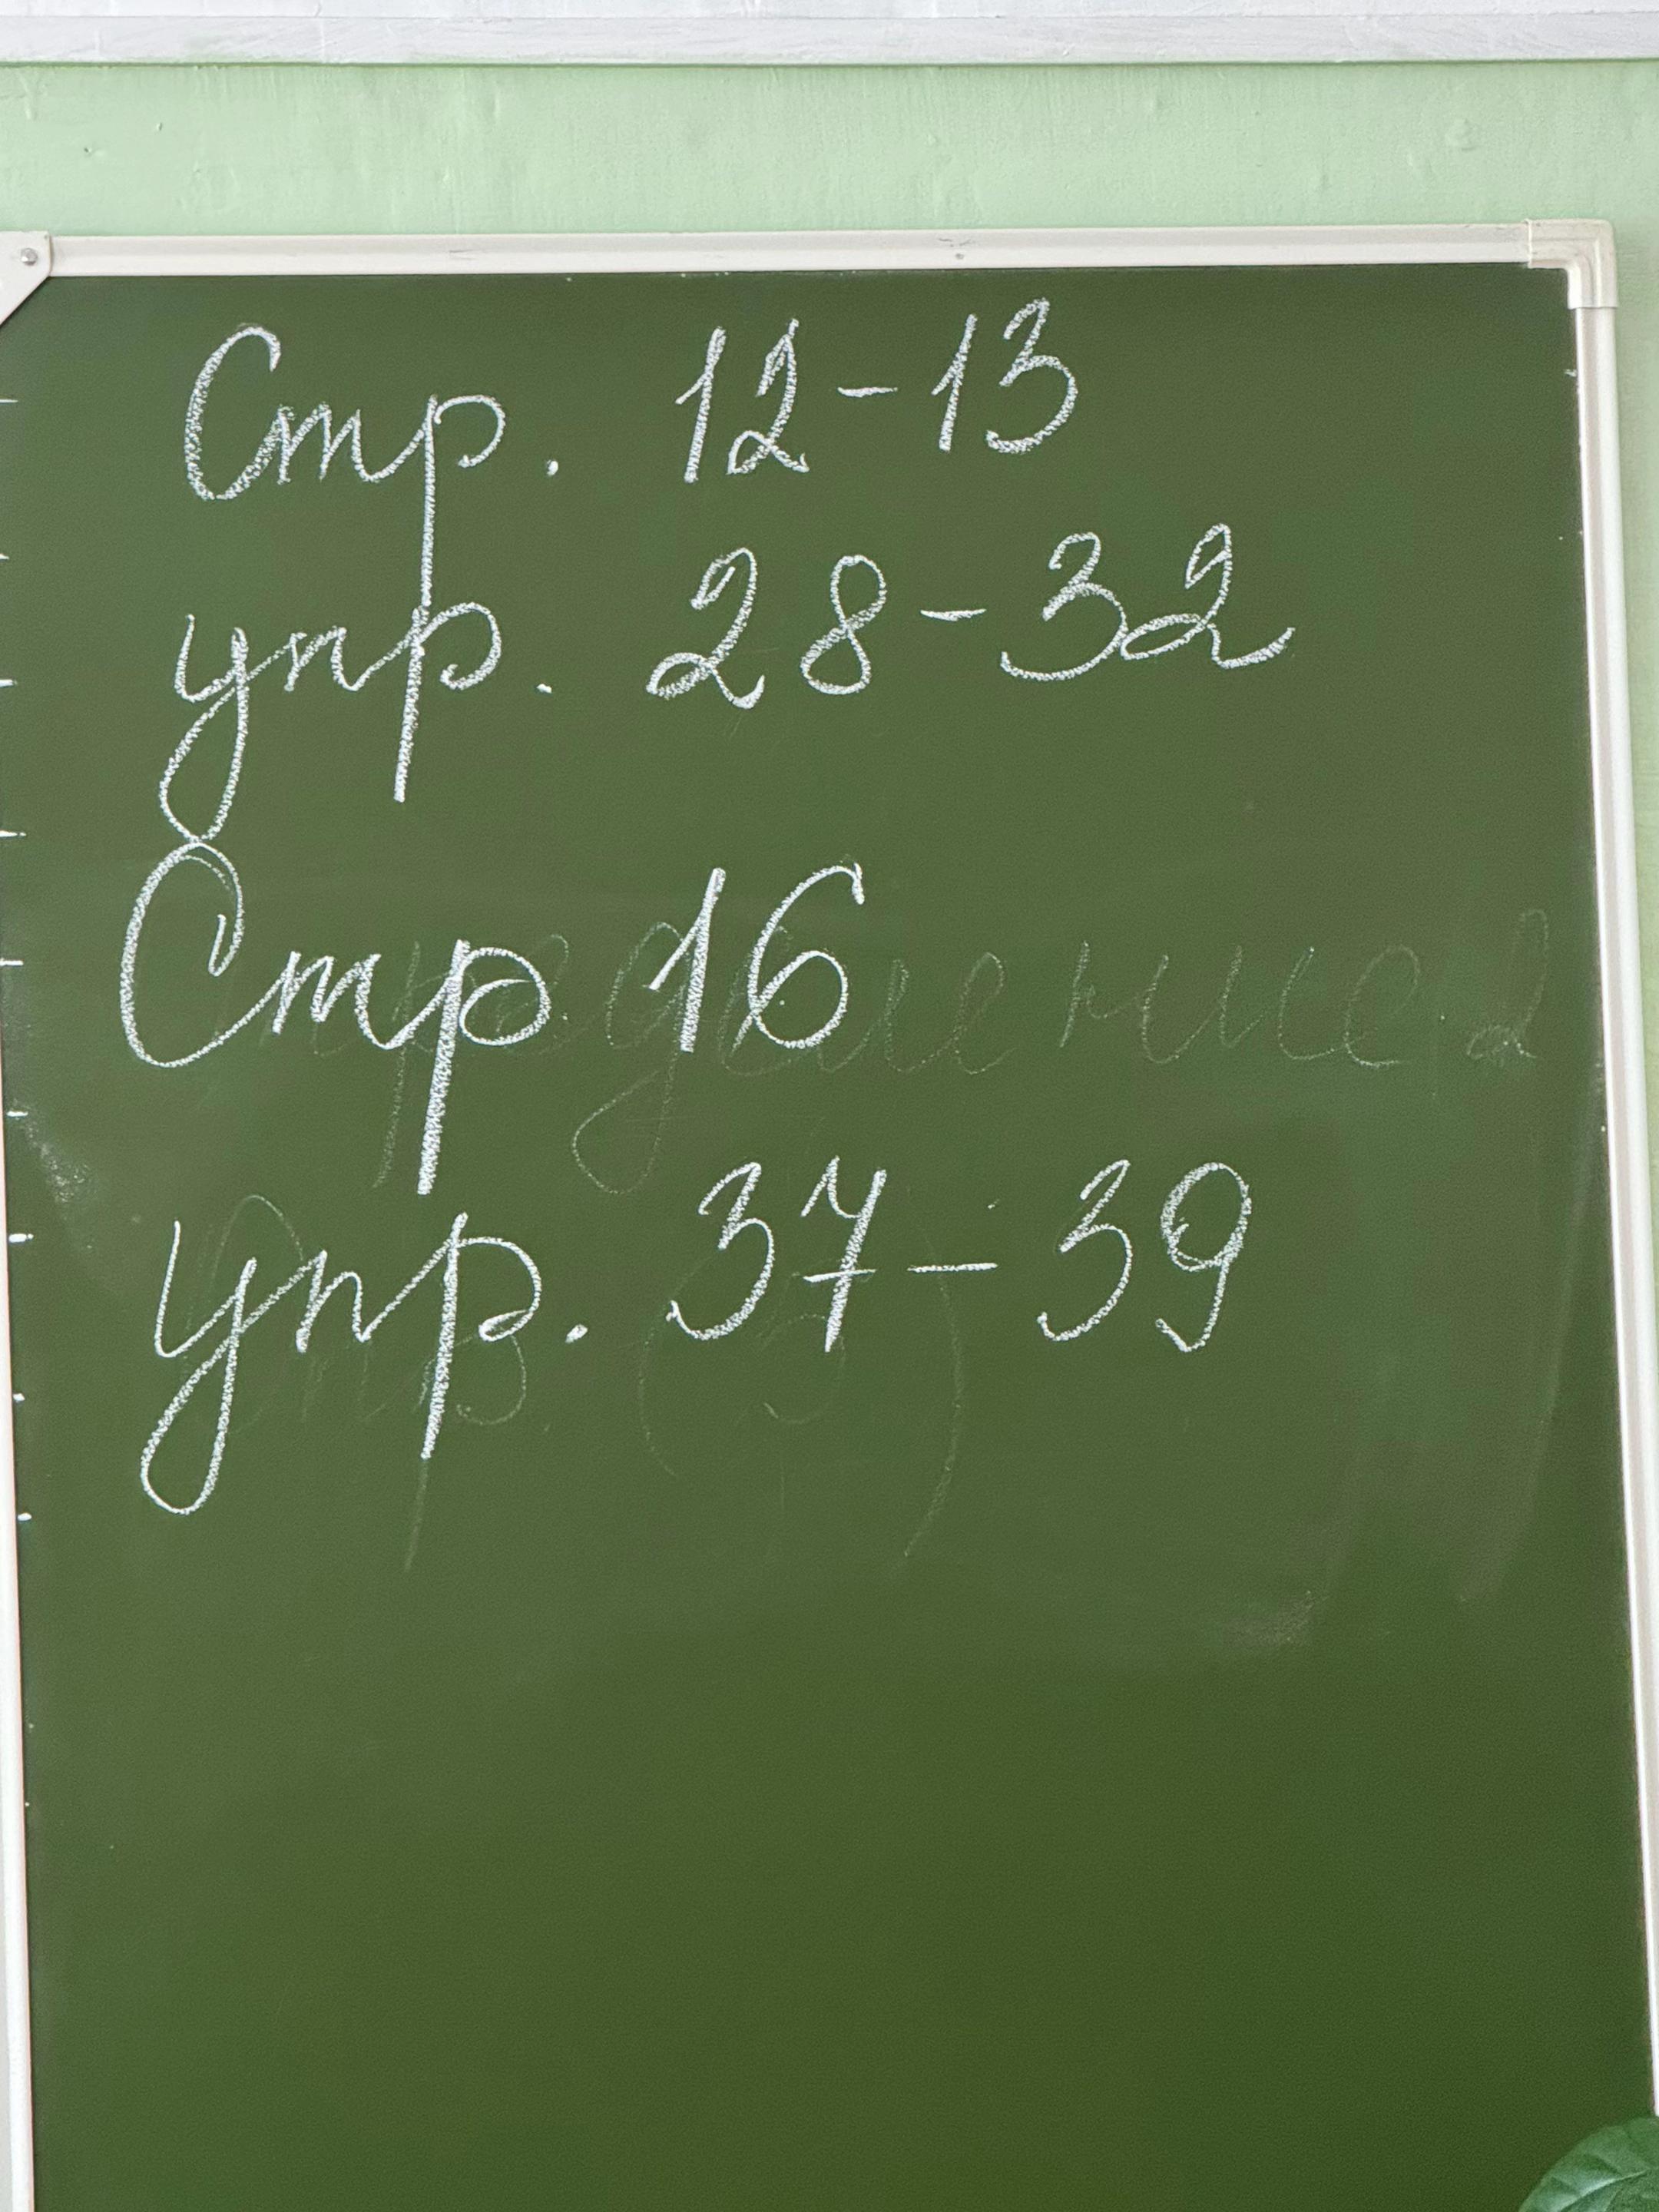 Стр. 12-13
упр. 28-32
Стр 16
упр. 37-39